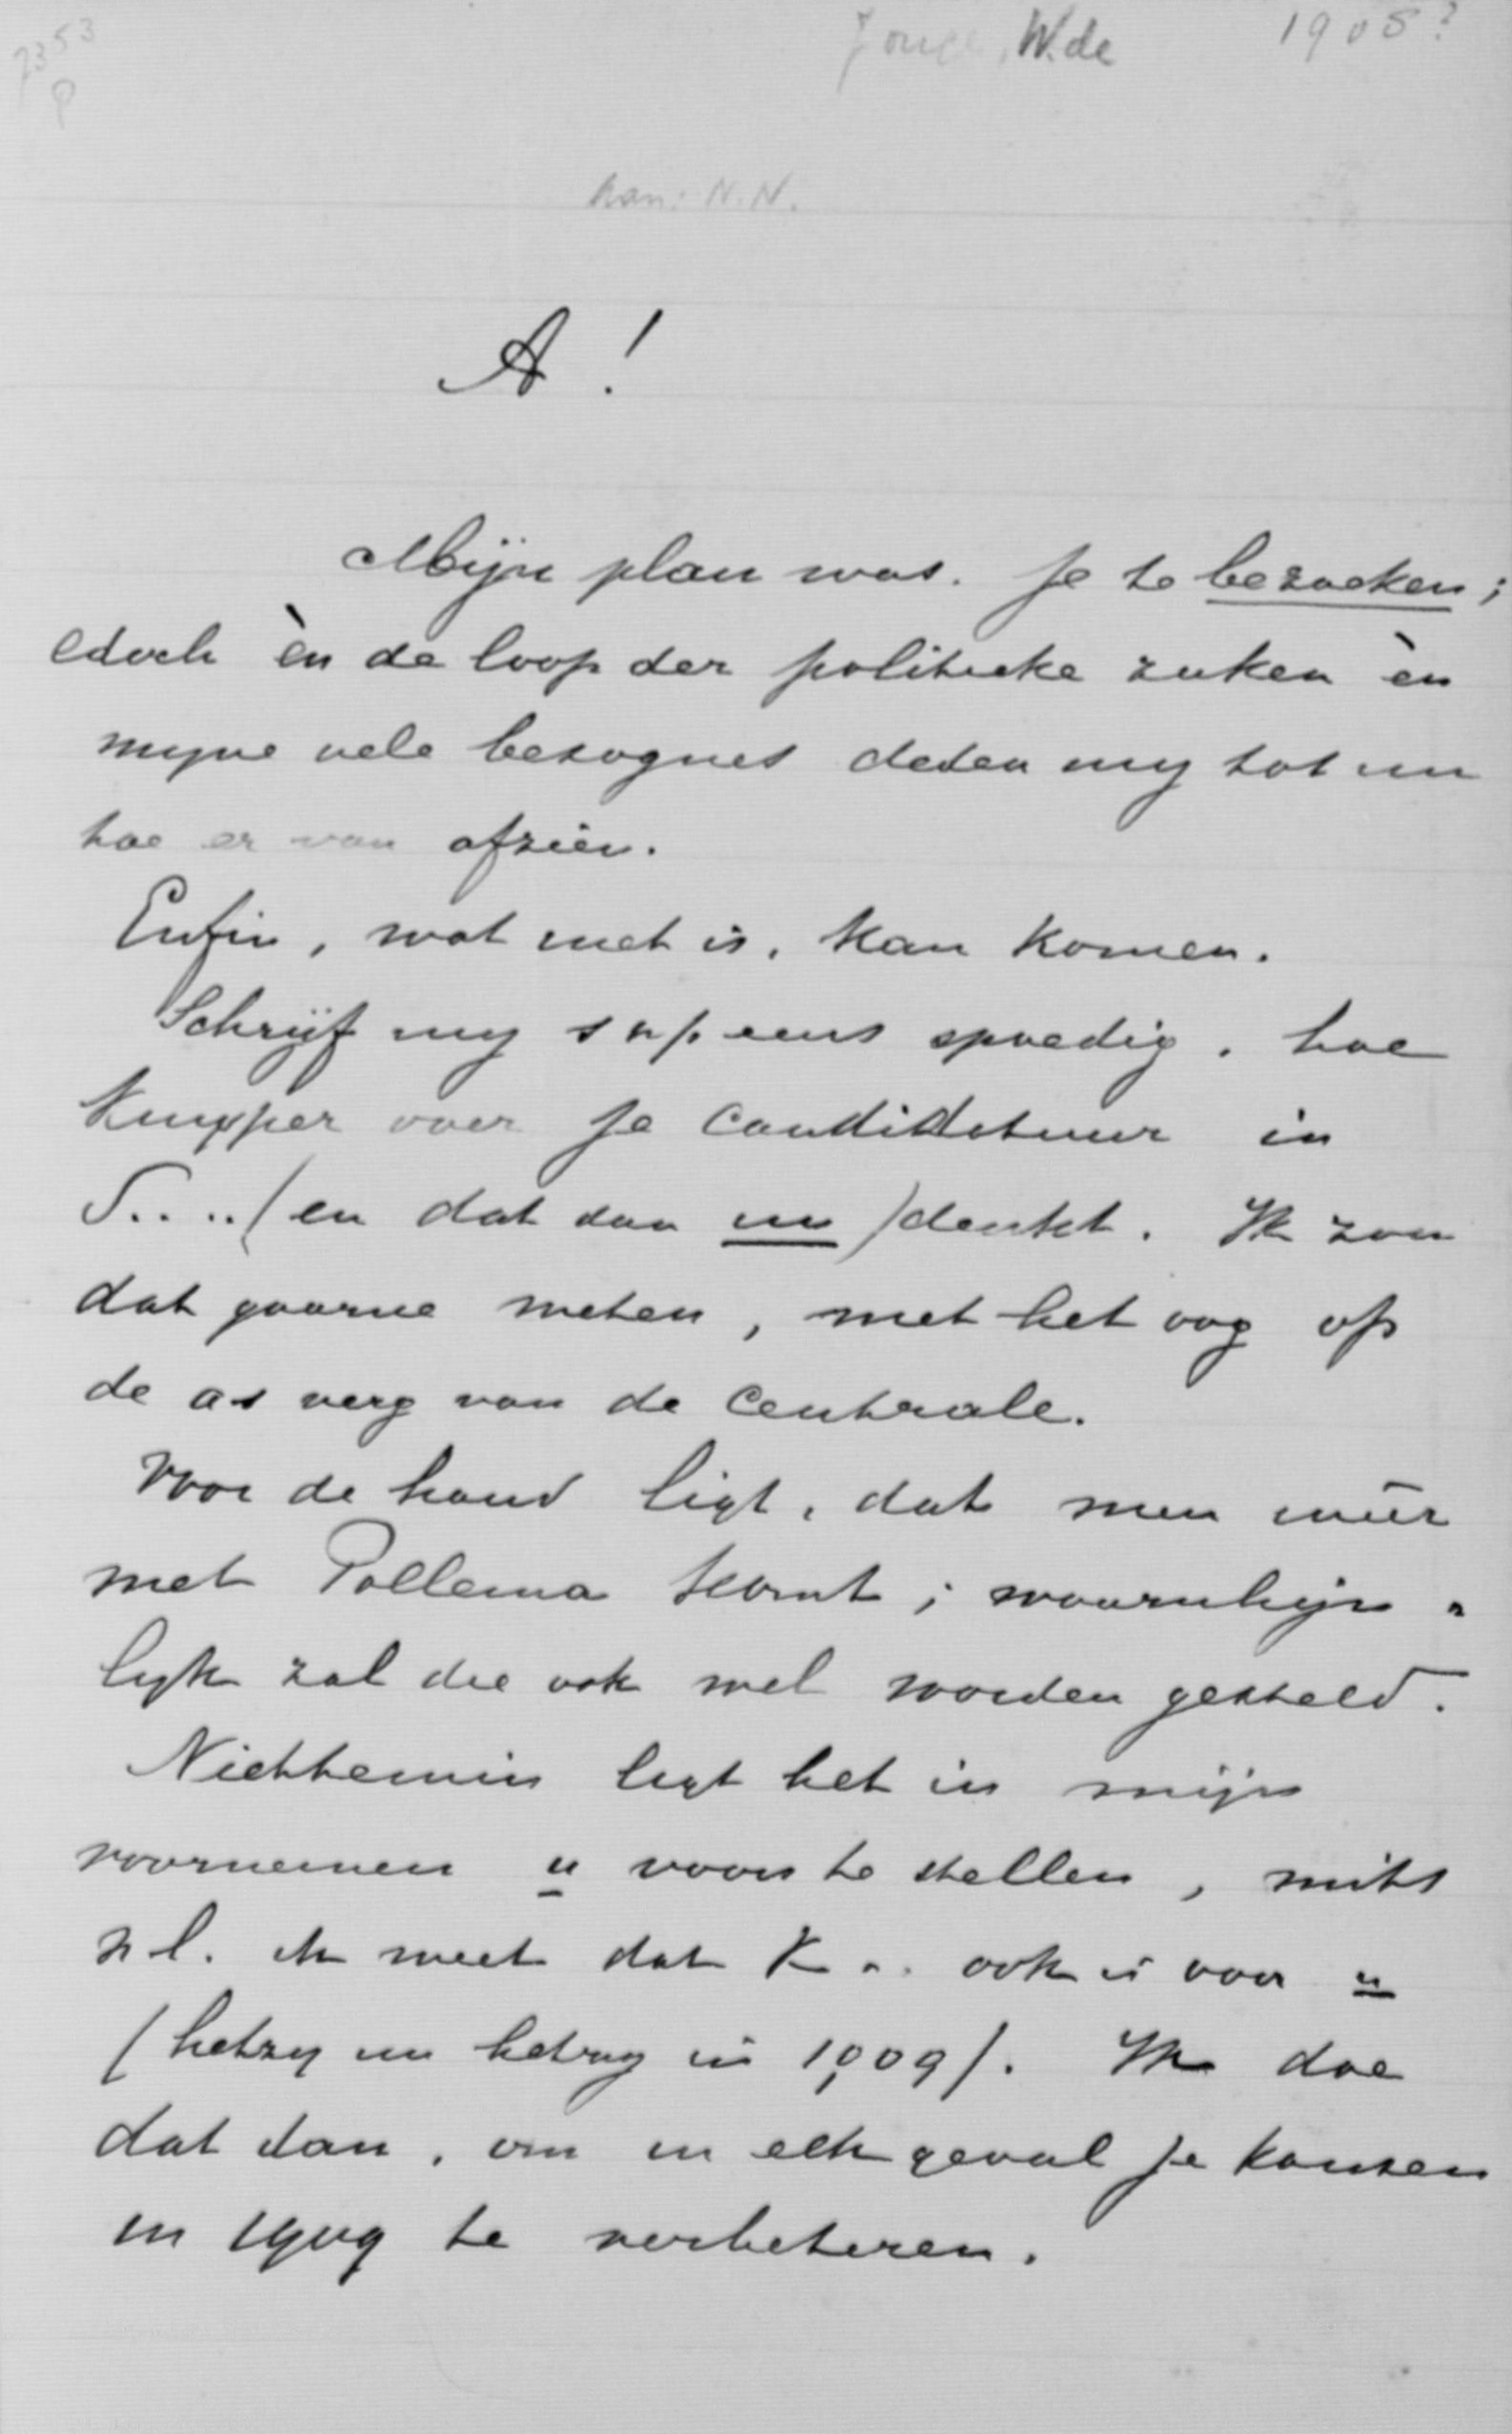 7353
P
Jonge, W. de
1908?
Aan: N.N.
A!
Mijn plan was. je te bezoeken;
edoch èn de loop der politieke zaken èn
mijne vele besognes deden mij tot nu
toe er van afzien.
Enfin, wat niet is, kan komen.
Schrijf mij svp. eens spoedig, hoe
Kuyper over je candidatuur in
S..../(en dat dan nu) denkt. Ik zou
dat gaarne weten, met het oog op
de a.s. verg van de Centrale.
Voor de hand ligt, dat men weer
met Pollema komt; waarschijn=
lijk zal die ook wel worden gesteld.
Niettemin ligt het in mijn
voornemen u voor te stellen, mits
nl. ik weet dat K.. ook is voor u
(hetzij nu hetzij in 1909). Ik doe
dat dan, om in elk geval je kansen
in 1909 te verbeteren.